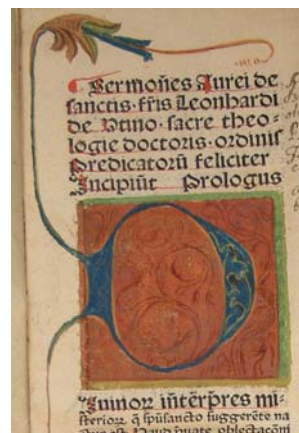 Sermoñes Aurei de
sanctis · fr̃is Leonhardi
de Utino · sacre theo⸗
logie doctoris · ordinis
Predicatorũ feliciter
Incipiũt Prologus
D
iuinoꝝ int̃erpres mi⸗
sterioꝝ q̃ spũsancto suggerẽte na